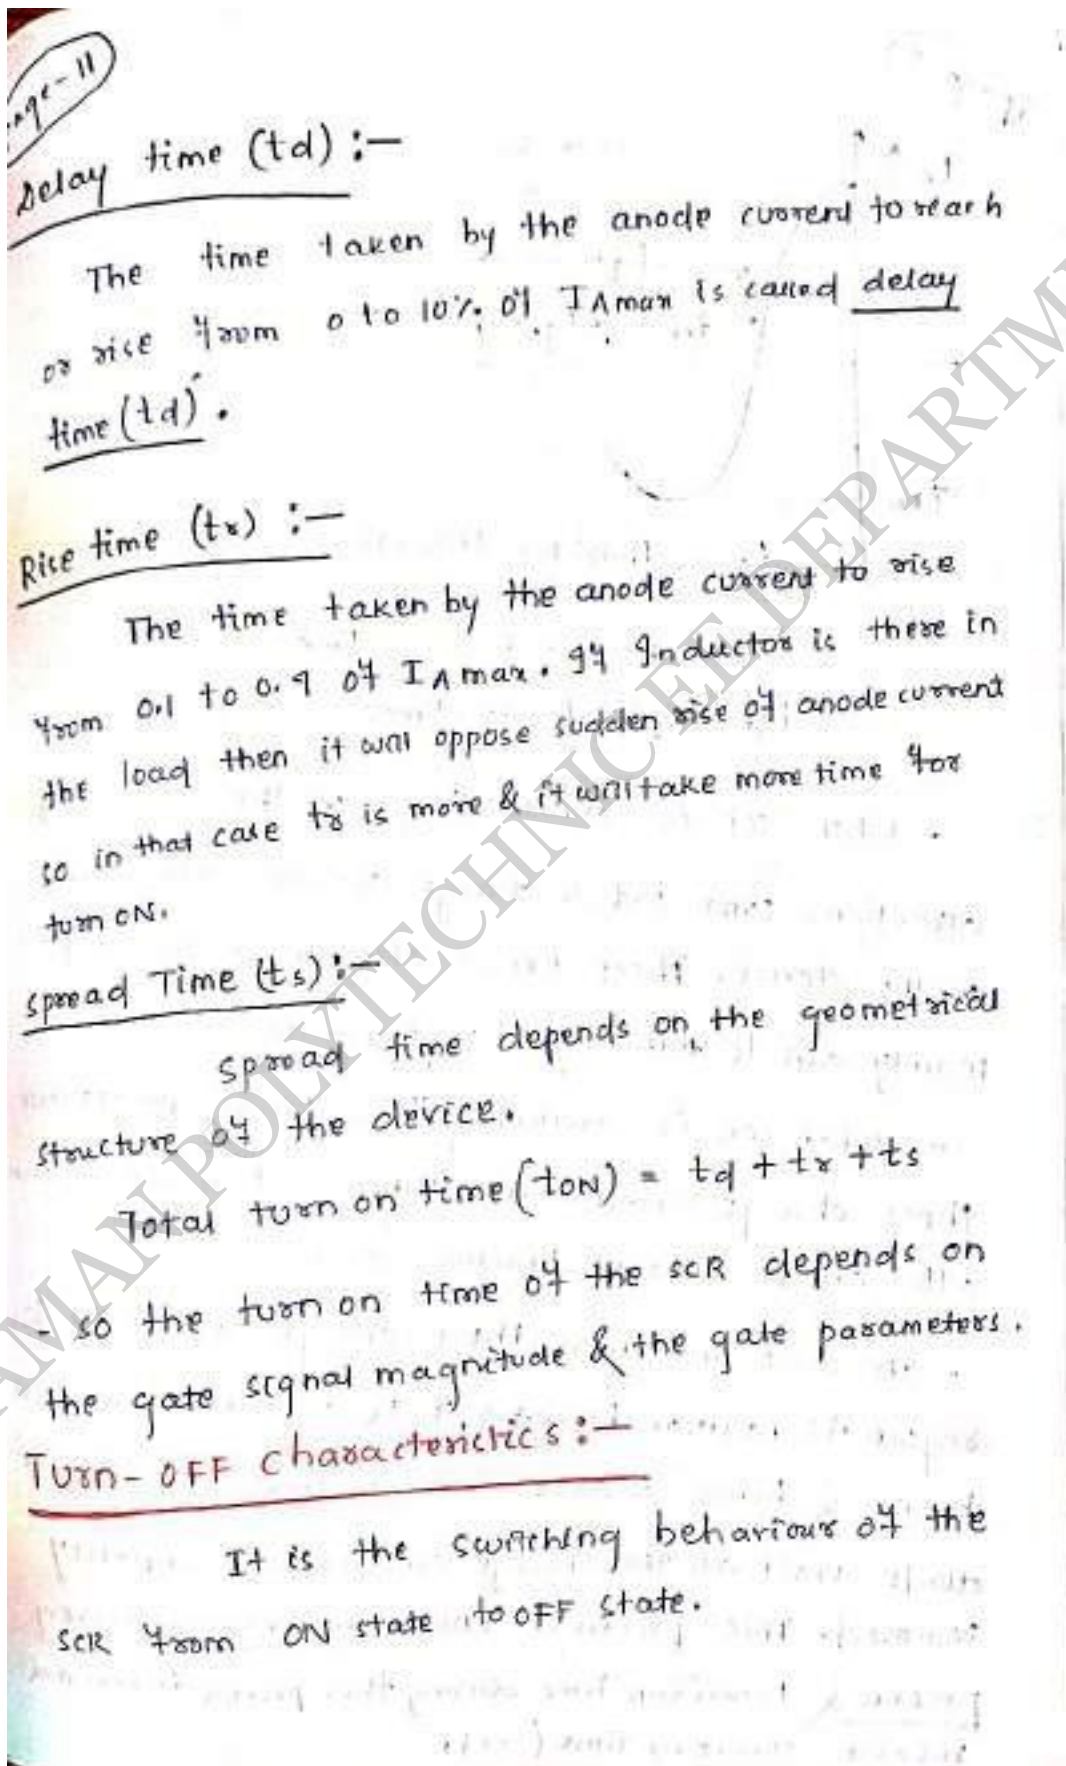 Page-11
Delay time (td) :-
The time taken by the anode current to reach
or rise from 0 to 10% of IAmax is called delay
time (td).
Rise time (tr) :-
The time taken by the anode current to rise
from 0.1 to 0.9 of IAmax. If Inductor is there in
the load then it will oppose sudden rise of anode current
so in that case tr is more & it will take more time for
turn ON.
spread Time (ts) :-
spread time depends on the geometrical
structure of the device.
Total turn on time (tON) = td + tr + ts
- so the turn on time of the SCR depends on
the gate signal magnitude & the gate parameters.
Turn-OFF characterictics :-
It is the switching behaviour of the
SCR from ON state to OFF state.
AMAN POLYTECHNIC EE DEPARTM